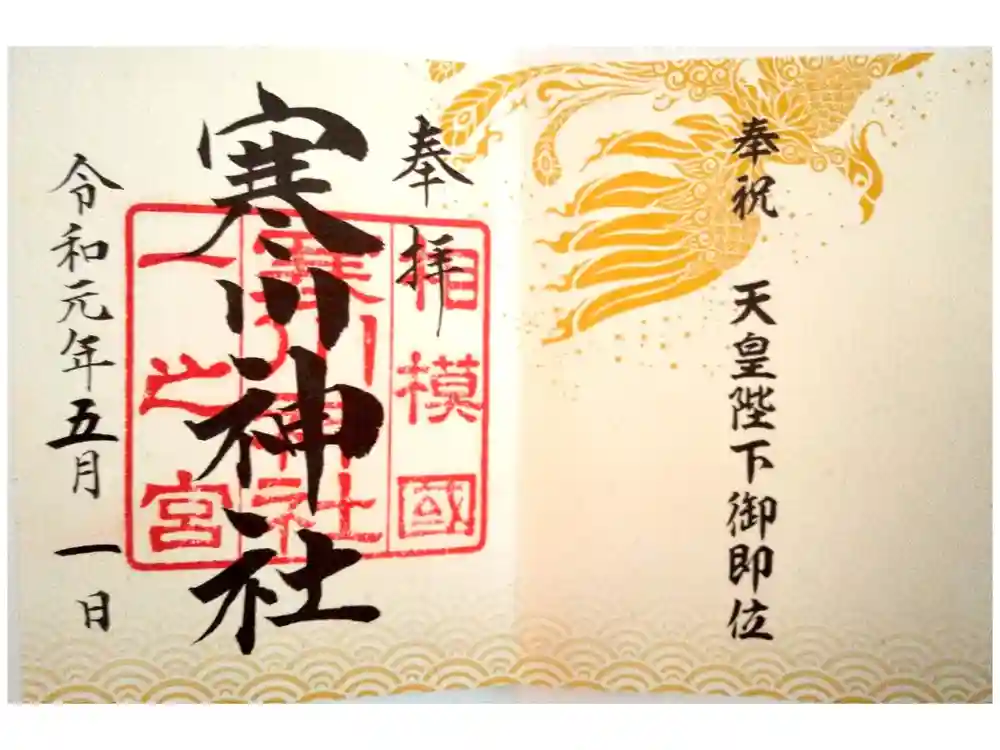 奉祝 天皇陛下御即位
奉拝
寒川神社
令和元年五月一日
相模國
寒川神社
一之宮